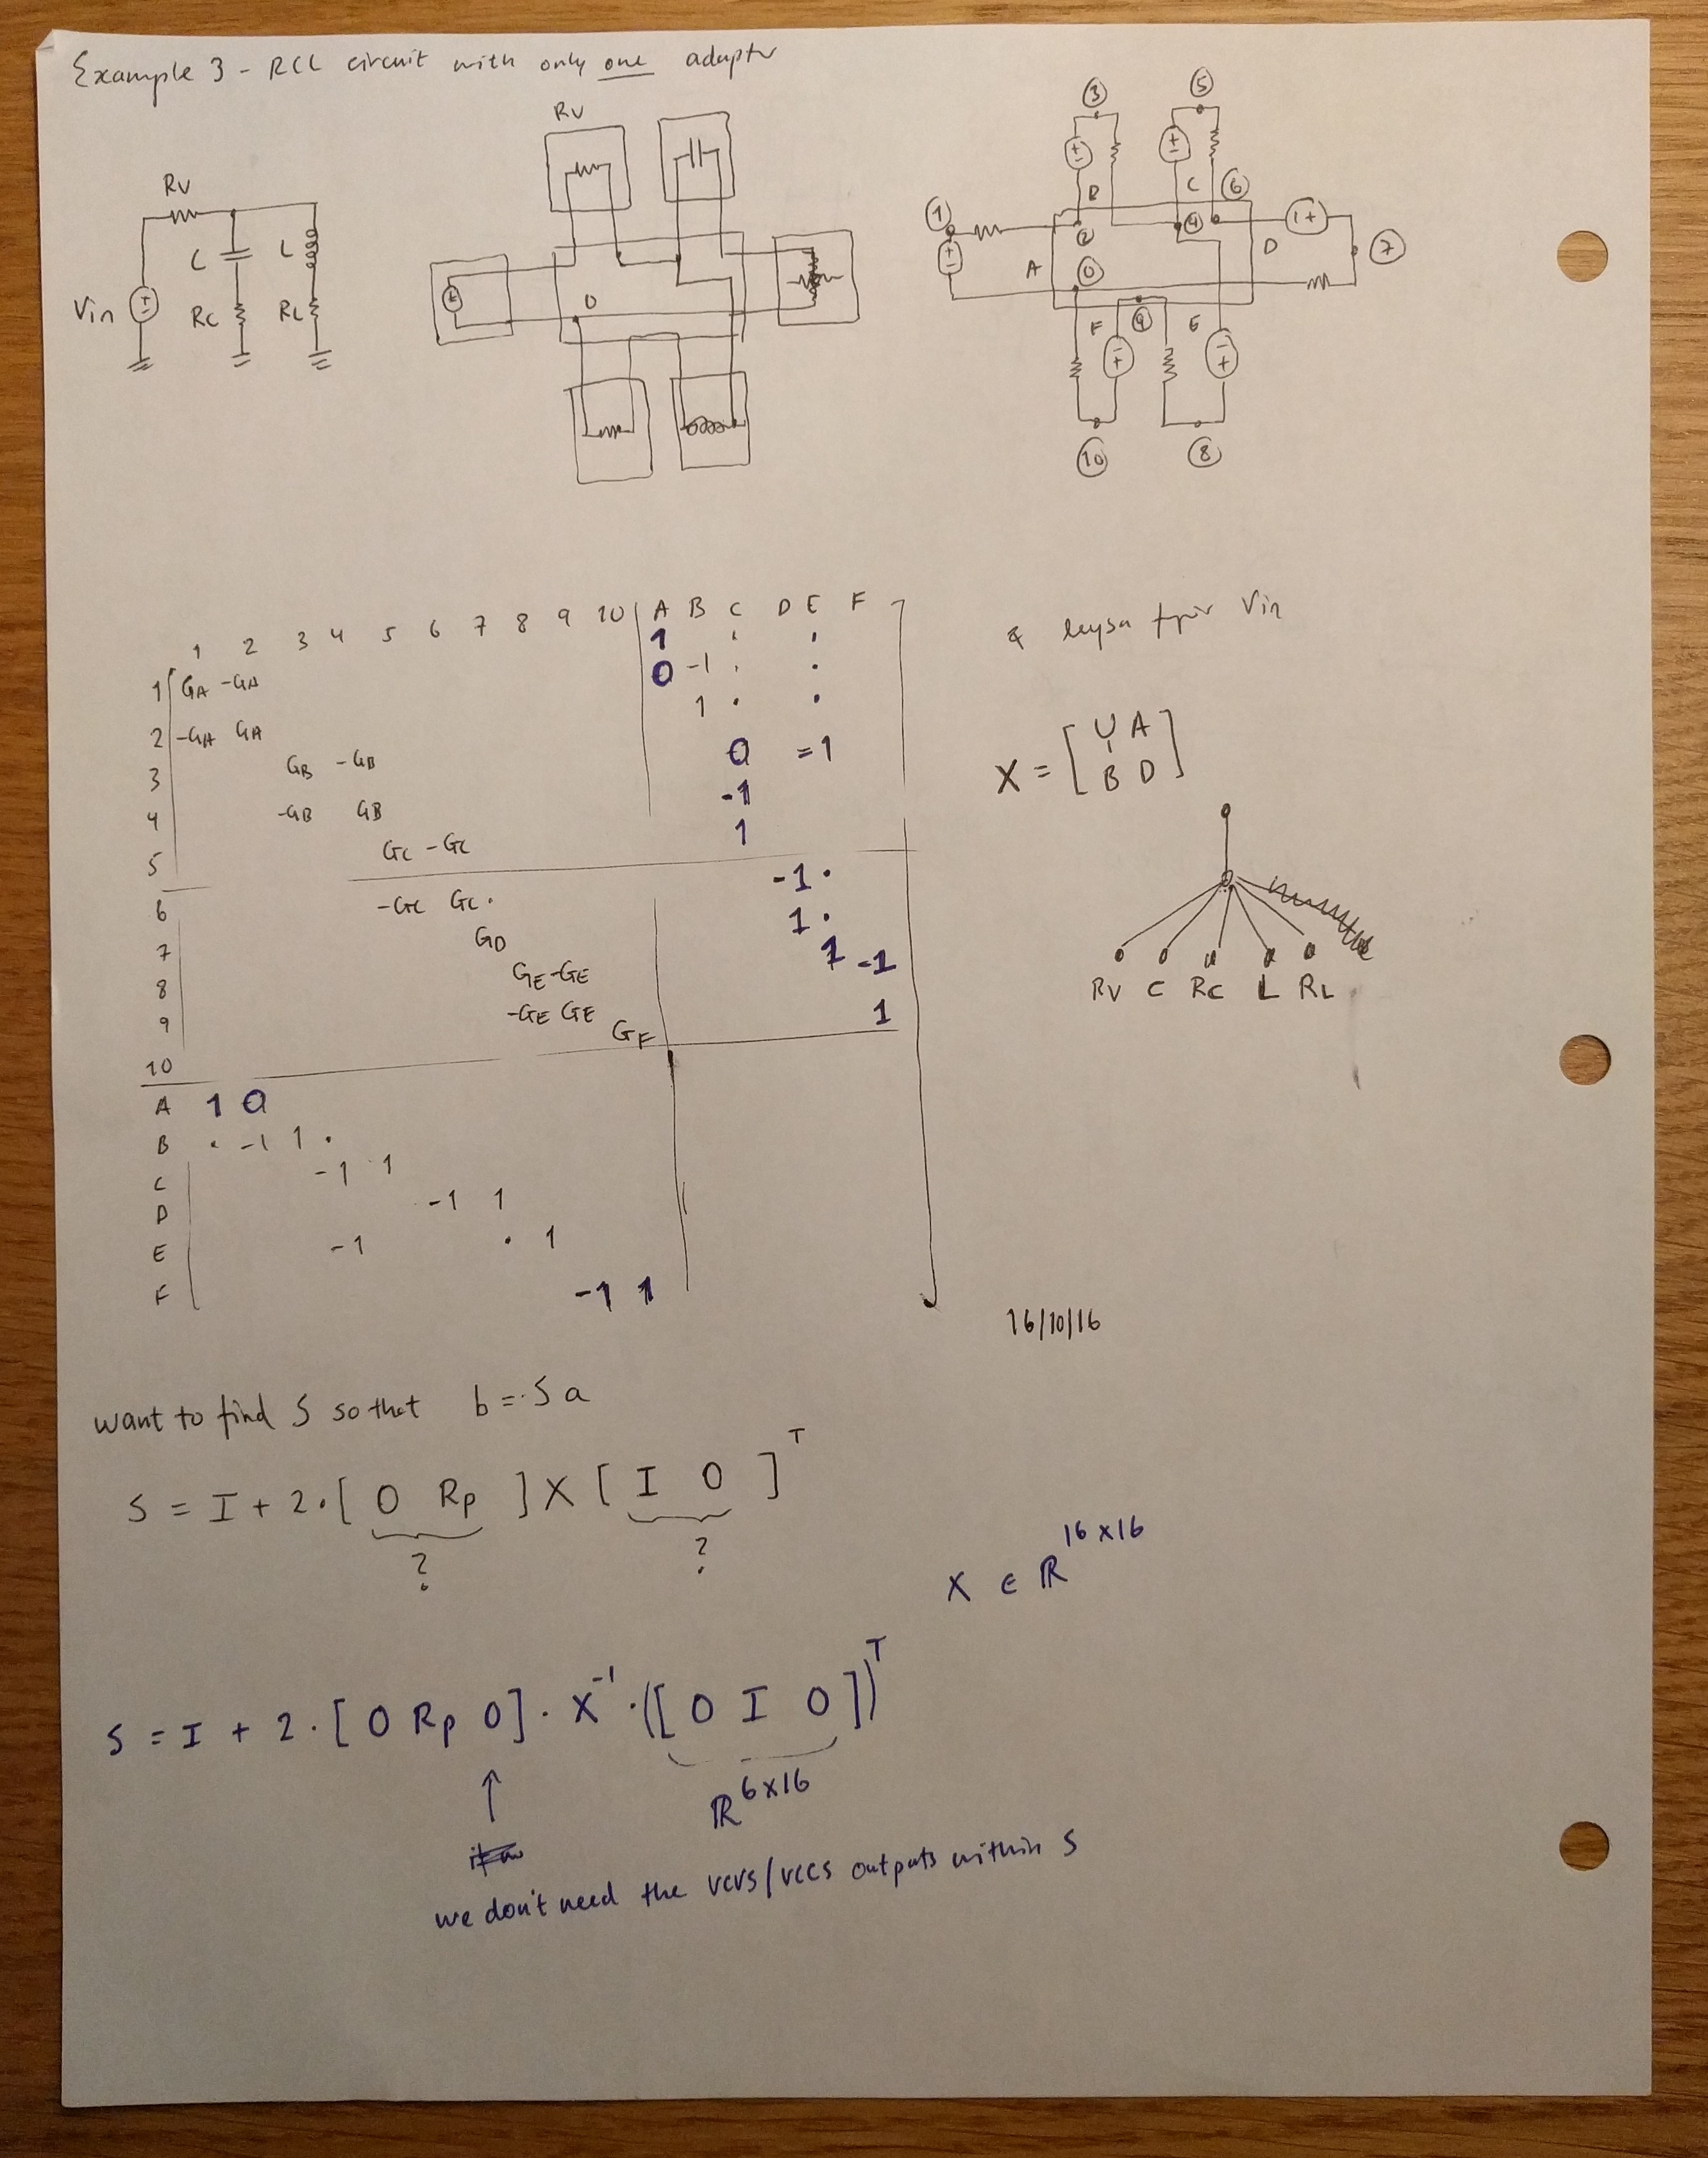 Example 3 - RCL circuit with only one adaptor
Rv
C
L
Vin
Rc
RL
Rv
0
1
2
0
3
4
5
6
7
8
9
10
A
B
C
D
E
F
1 2 3 4 5 6 7 8 9 10 A B C D E F
1 GA -GA 1
2 -GA GA 0 -1
3 GB -GB 1
4 -GB GB 0 -1
5 GC -GC -1
6 -GC GC 1 -1
7 GD 1
8 GE -GE 1 -1
9 -GE GE 1
10 GF
A 1 0
B -1 1
C -1 1
D -1 1
E -1 1
F -1 1
Vin
X = [ U A
B D ]
Rv C Rc L RL
16/10/16
want to find S so that b = S a
S = I + 2 · [ 0 Rp ] X [ I 0 ]ᵀ
? ?
X ∈ ℝ^16×16
S = I + 2 · [ 0 Rp 0 ] · X⁻¹ · ([ 0 I 0 ])ᵀ
ℝ^6×16
we don't need the vcvs/vccs outputs within S